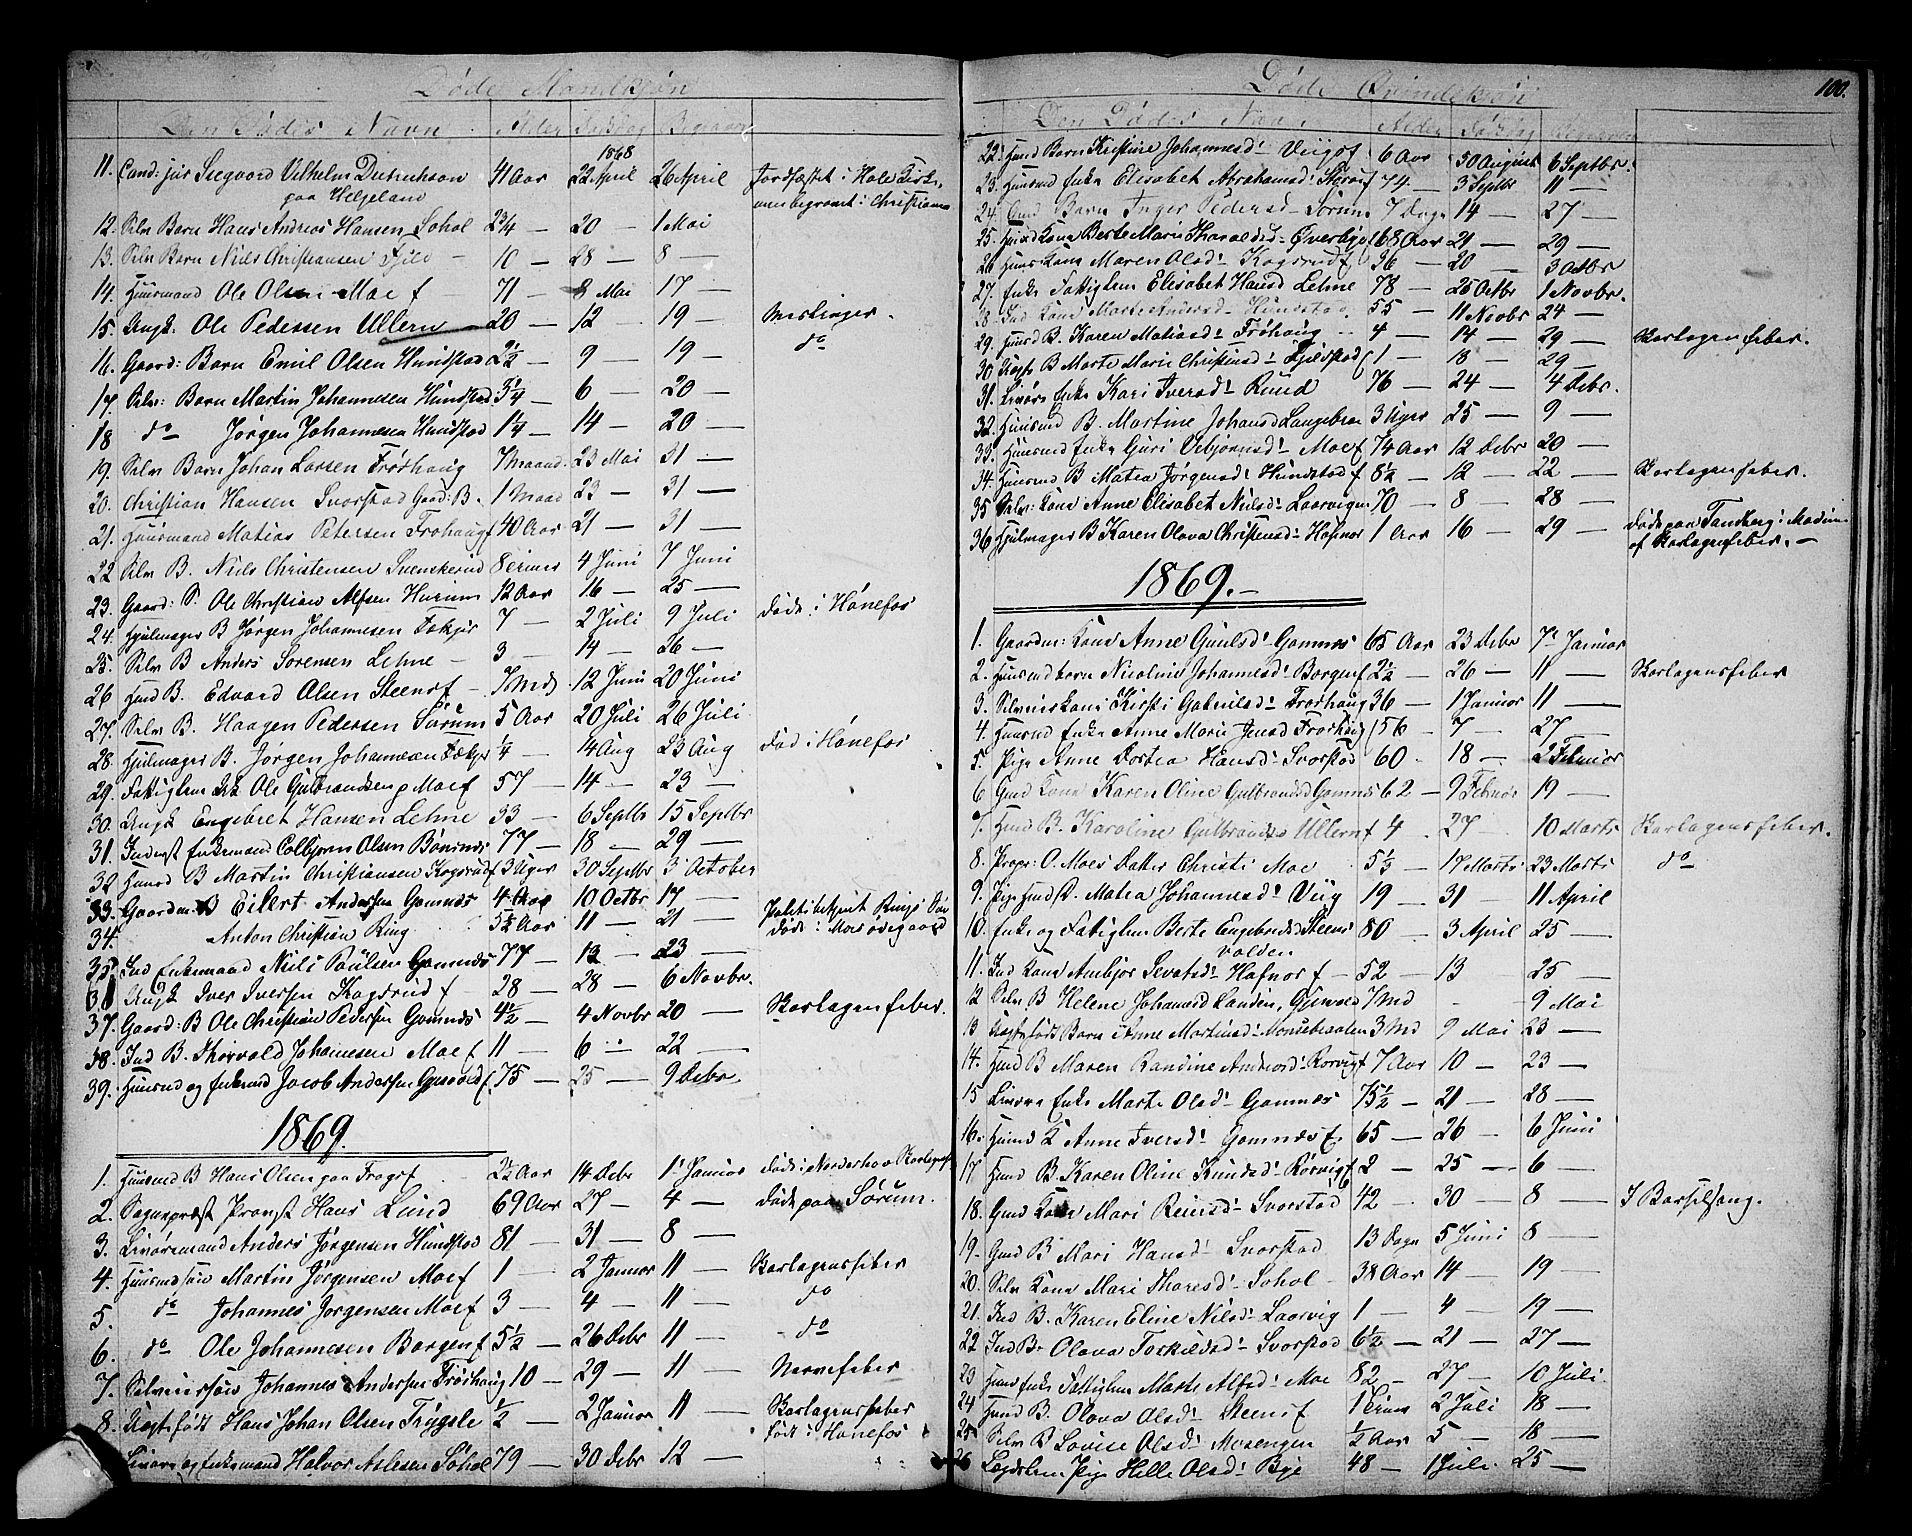 Døde Mandkjøn
Den Dødes Navn Alder Dødsdag Begravet
1868
11. Cand: jur Seegvard Vilhelm Dietrichson 41 Aar 22 April 26 April Jordfæstet i Hole Kirke,
paa Helgeland men begravet i Christiania
12. Selv Barn Hans Andreas Hansen Sohol 2¾ — 20 — 1 Mai
13. Selv Barn Niels Christiansen Fjeld — 10 — 28 — 8 —
14. Huusmand Ole Olsen Moe f 71 — 8 Mai 17 —
15. Ungk. Ole Pedersen Ullern 20 — 12 — 19 — Meslinger.
16. Gaard: Barn Emil Olsen Hundstad 2½ — 9 — 19 — do
17. Selv: Barn Martin Johannesen Hundstad 3¼ — 6 — 20 —
18 do Jørgen Johannesen Hundstad 1¼ — 14 — 20 —
19. Selv Barn Johan Larsen Frøshaug 7 Maand. 23 Mai 31 —
20. Christian Hansen Svorstad Gaard: B. 1 Maad 23 — 31 —
21. Huusmand Matias Petersen Frøhaug f 40 Aar 21 — 31 —
22 Selv B. Niels Christensen Svenskerud 8 4 Juni 7 Juni
23. Gaard: S. Ole Christian Alfsen Hurum 12 Aar 16 — 25 —
24. Hjulmager B Jørgen Johannesen Fekjer 7 — 2 Juli 9 Juli Døde i Hønefos
25. Selv B Anders Sorensen Lehne — 3 — 14 — 26 —
26 Huusd B. Edvard Olsen Steensf — 7 Md. 12 Juni 20 Juni
27. Selv B. Haagen Pedersen Sørum 5 Aar 20 Juli 26 Juli
28. Hjulmager B. Jørgen Johannesen Fekjer ¼ — 14 Aug 23 Aug Død i Hønefos
29. Fattiglem Ole Gulbrandsen Moe f 57 — 14 — 23 —
30. Ungk Engebret Hansen Lehne 33 — 6 Septbr 15 Septbr
31. Inderst Enkemand Colbjørn Olsen Bønsnes 77 — 18 — 29 —
32 Huusd B Martin Christiansen Kogsrud f 3 Uger 30 Septbr 3 October
33. Gaardm B Eilert Andersen Gomnæs 4 Aar 10 Octbr 17 —
34. Anton Christian Ring 5½ Aar 11 — 21 — Politibetjent Rings Søn
døde i Moes ødegaard
35. Ind Enkemand Niels Poulsen Gomnæs 77 — 13 — 23 —
36 Ungk Iver Iversen Kogsrud f — 28 — 28 — 6 Novbr.
37. Gaard: B Ole Christian Pedersen Gomnæs 4½ — 4 Novbr 20 — Skarlagensfeber.
38. Ind B. Thorvald Johannesen Moe f 11 — 6 — 22 —
39. Huusmd og Enkemd Jacob Andersen Gjesvold f 75 — 25 — 9 Debr.
1869.
1. Huusmd B Hans Olsen paa Frogsf 2½ Aar 14 Debr 1 Januar Døde i Norderhov Skarlagensf
2. Sognepræst Provst Hans Lund 69 Aar 27 — 4 — Døde paa Sørum.
3. Livøremand Anders Jørgensen Hundstad 81 — 31 — 8 —
4. Huusmd søn Martin Jørgensen Moe f 1 — 2 Januar 11 — Skarlagensfeber
5. do Johannes Jørgensen Moe f 3 — 4 — 11 — do
6. do Ole Johannesen Borgen f 5½ — 26 Debr 11 — do
7. Selveiersøn Johannes Andersen Frøshaug 10 — 29 — 11 — Nervefeber
8. Uægtefødt Hans Johan Olsen Trygsle ½ — 2 Januar 11 — Skarlagensfeber
født i Hønefos
Livøre og Enkemand Halvor Aslesen Sohol 79 — 30 Debr 12 —
Døde Qvindekjøn 100.
Den Dødes Navn Alder Dødsdag Begravet
22. Huusd Barn Kristine Johannesd: Viig f 6 Aar 30 August 6 Septbr.
23. Huusmd Enke Elisabet Abrahamsd: 74 — 3 Septbr 11 —
24. Barn Inger Pedersd — Sørum 7 Dage 14 — 27 —
25. Huusd Kone Berte Marie Haraldsd — Øverbye f 68 Aar 21 — 29 —
26 Huus Kone Maren Olsd: Kogsrud f 36 — 20 — 3 Octbr
27. Enke Fattiglem Elisabet Hansd Lehne 78 — 25 Octbr 1 Novbr.
28. Ind Kone Marte Andersd — Hundstad 55 — 11 Novbr 24 —
29. Huusd B. Karen Matiasd — Frøhaug 4 — 14 — 29 — Skarlagensfeber.
30 Uægte B. Marte Marie Christiansd: Fjeldstad f 1 — 18 — 29 —
31. Livøre Enke Kari Iversd: Rund 76 — 24 — 4 Debr.
32. Huusmd B. Martine Johansd Langebrae 3 Uger 25 — 9 —
33. Huusmd Enke Guri Vebjørnsd: Moe f 74 Aar 12 Debr 20 —
34. Huusmd B Matea Jørgensd: Hundstad f 8½ — 12 — 22 — Skarlagensfeber.
35 Selv: Kone Anne Elisabet Nielsd: Laarvigen 70 — 8 — 28 —
36 Hjulmager B Karen Olava Christensd: Hafnor 1 Aar 16 — 29 — Døde paa Tandberg i Modum
af Skarlagensfeber. —
1869. —
1. Gaardm: Kone Anne Guulsd: Gomnæs 65 Aar 23 Debr 7 Januar
2. Huusmd barn Nicoline Johannesd: Borgen f 2½ — 26 — 11 — Skarlagensfeber
3. Selveierskone Kirsti Gabrielsd: Frøshaug 36 — 1 Januar 11 —
4. Huusmd Enke Anne Marie Jensd Frøshaug f 56 — 7 — 27 —
5. Pige Anne Dortea Hansd: Svorstad 60 — 18 — 2 Februar
6 Gmd Kone Karen Oline Gulbrandsd Gomnæs 62 — 9 Februar 19 —
7. Huusd B. Karoline Gulbrandsd Ullern f 4 — 27 — 10 Marts Skarlagensfeber.
8. Propr: O. Moes Datter Christi Moe 5½ — 17 Marts 23 Marts do
9. Pige Huusd D. Matea Johannesd: Viig 19 — 31 — 11 April
10. Enke og Fattiglem Berte Engebretsd Steens 80 — 3 April 25 —
valden
11. Ind Kone Ambjør Sevatsd: Hafnor f — 52 — 13 25 —
12 Selv B Helene Johannesd Sanden, Gjesvold 7 Md - — 9 Mai
13 Uægtefødt Barn Anne Martinsd: Monsebraaten 3 Md 9 Mai 23 —
14. Huusd B Maren Randine Andreasd: Rørvig f 7 Aar 10 — 23 —
15 Livøre Enke Marte Olsd: Gomnæs 75½ — 21 — 28 —
16. Huusd K Anne Iversd: Gomnæs f. 65 — 26 — 6 Juni
17 Huusd B. Karen Oline Knudsd: Rørvig f 2 — 25 — 6 —
18. Gmd Kone Mari Reiersd: Svorstad 42 — 30 — 8 — I Barselseng.
19. Gmd B. Mari Hansd: Svorstad 13 Dage 5 Juni 8 —
20. Selv Kone Mari Tharesd: Sohol — 38 Aar 14 — 19 —
21. Ind B. Karen Eline Nilsd: Laarvig 1 — 4 — 19 —
22 Ind B. Olava Torkildsd: Svorstad 6½ — 21 — 27 —
23 Huusd Enke Fattiglem Marte Alfsd: Moe 82 — 27 — 10 Juli
24 Huusd B. Olava Olsd: Steens f 2 Juli 18 —
25 Selv B Lovise Olsd: Mosengen ½ Aar 5 — 18 —
26 Lægdslem Pige Helle Olsd: Bye 48 — 1 Juli. 25 —